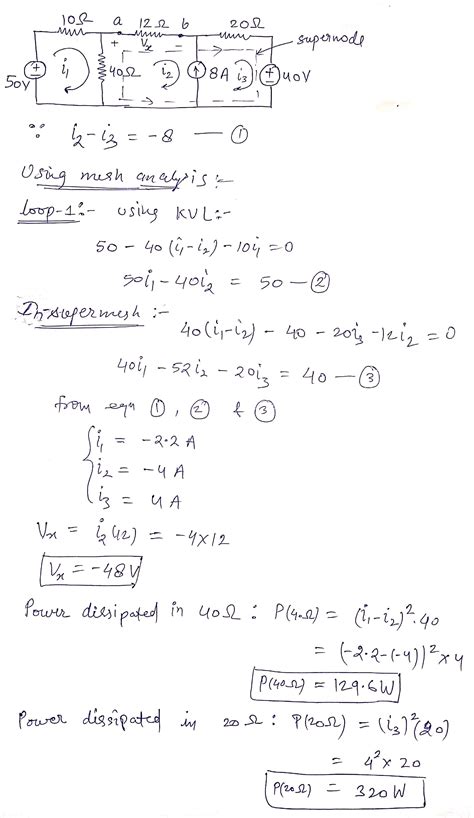 10Ω a 12Ω b 20Ω
supernode
+ Vx -
50V i₁ 40Ω i₂ 8A i₃ 40V
∵ i₂ - i₃ = -8 — ①
Using mesh analysis :-
Loop-1 :- using KVL :-
50 - 40(i₁ - i₂) - 10i₁ = 0
50i₁ - 40i₂ = 50 — ②
In supermesh :-
40(i₁-i₂) - 40 - 20i₃ - 12i₂ = 0
40i₁ - 52i₂ - 20i₃ = 40 — ③
from eqn ①, ② & ③
i₁ = -2.2 A
i₂ = -4 A
i₃ = 4 A
Vx = i₂(12) = -4×12
Vx = -48V
Power dissipated in 40Ω : P(40Ω) = (i₁-i₂)².40
= (-2.2-(-4))² × 4
P(40Ω) = 129.6W
Power dissipated in 20Ω : P(20Ω) = (i₃)²(20)
= 4² × 20
P(20Ω) = 320W